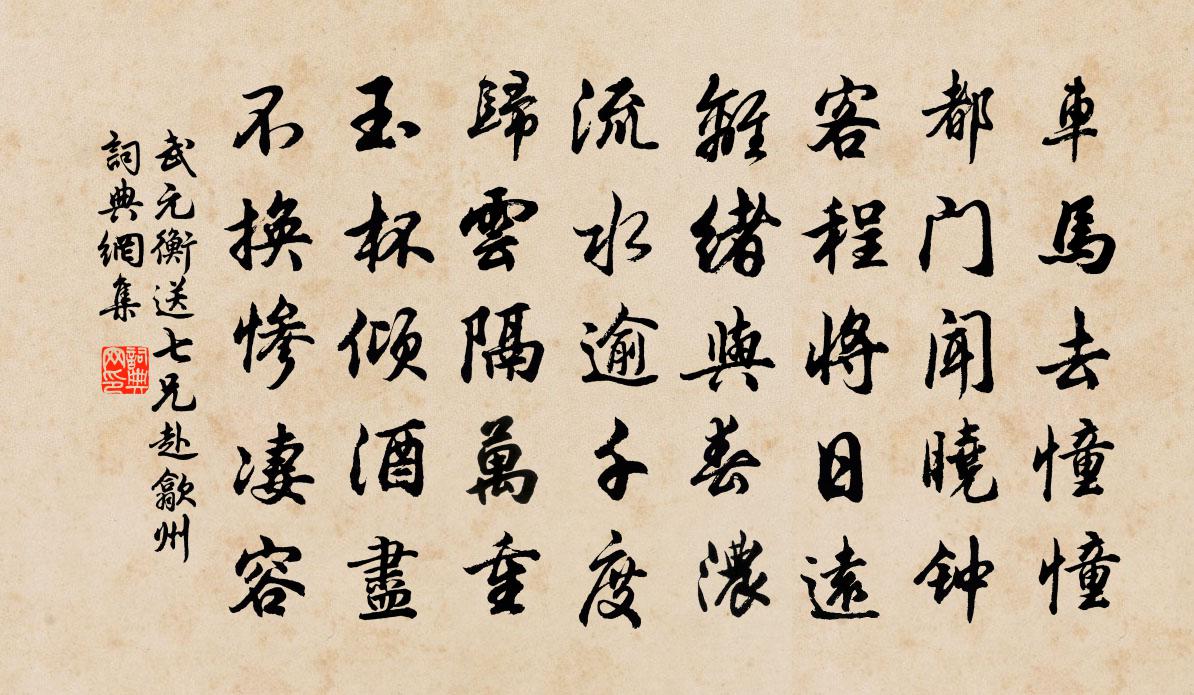 車馬去憧憧
都门闻曉钟
客程將日遠
離緒與春濃
流水逾千度
歸雲隔萬重
玉杯傾酒盡
不換慘凄容
武元衡送七兄赴歙州
詞典網集
詞典网印